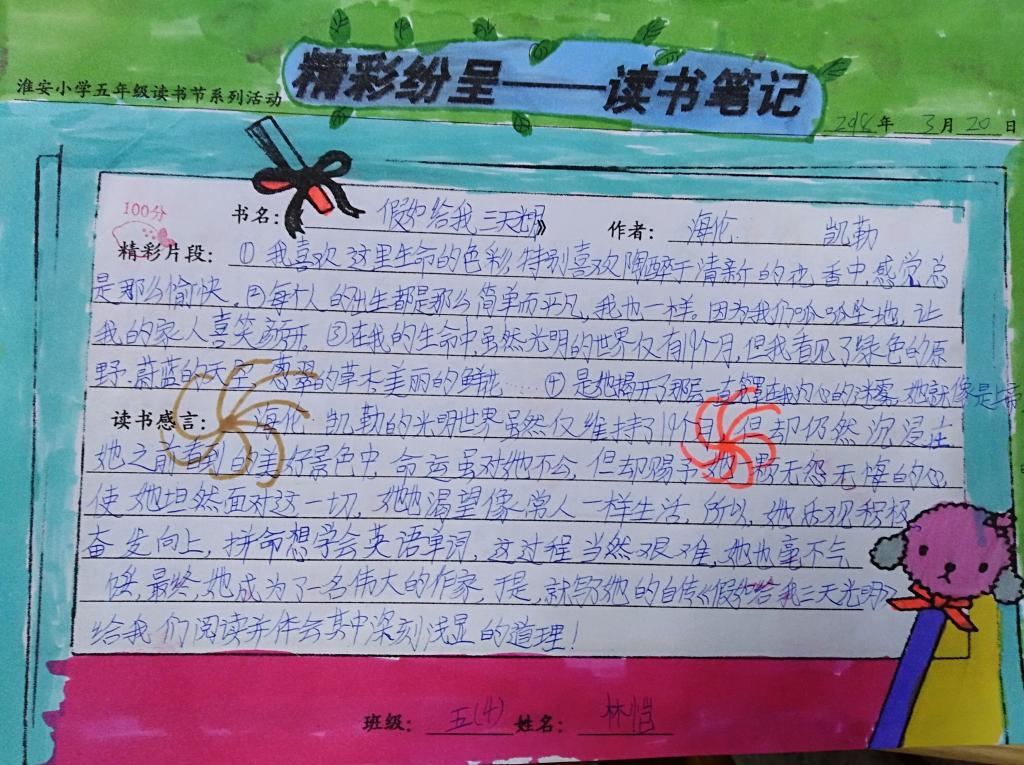 精彩纷呈——读书笔记
淮安小学五年级读书节系列活动
2018年 3月20日
100分
书名:《假如给我三天光明》 作者: 海伦 凯勒
精彩片段: ①我喜欢这里生命的色彩,特别喜欢陶醉于清新的花香中,感觉总
是那么愉快。②每个人的出生都是那么简单而平凡,我也一样。因为我们呱呱坠地,让
我的家人喜笑颜开。③在我的生命中,虽然光明的世界仅有19个月,但我看见了绿色的原
野.蔚蓝的天空,葱翠的草木.美丽的鲜花……④是她揭开了那层一直笼罩在我内心的迷雾。她就像是上帝
读书感言: 海伦 凯勒的光明世界虽然仅维持了19个月,但却仍然沉浸在
她之前看到的美好景色中,命运虽对她不公,但却赐予她一颗无怨无悔的心,
使她坦然面对这一切,她渴望像常人一样生活,所以,她乐观积极,
奋发向上,拼命想学会英语单词,这过程当然艰难,她也毫不气
馁,最终,她成为了一名伟大的作家,于是,就写了她的自传《假如给我三天光明》
给我们阅读并体会其中深刻浅显的道理!
班级: 五(4) 姓名: 林恺